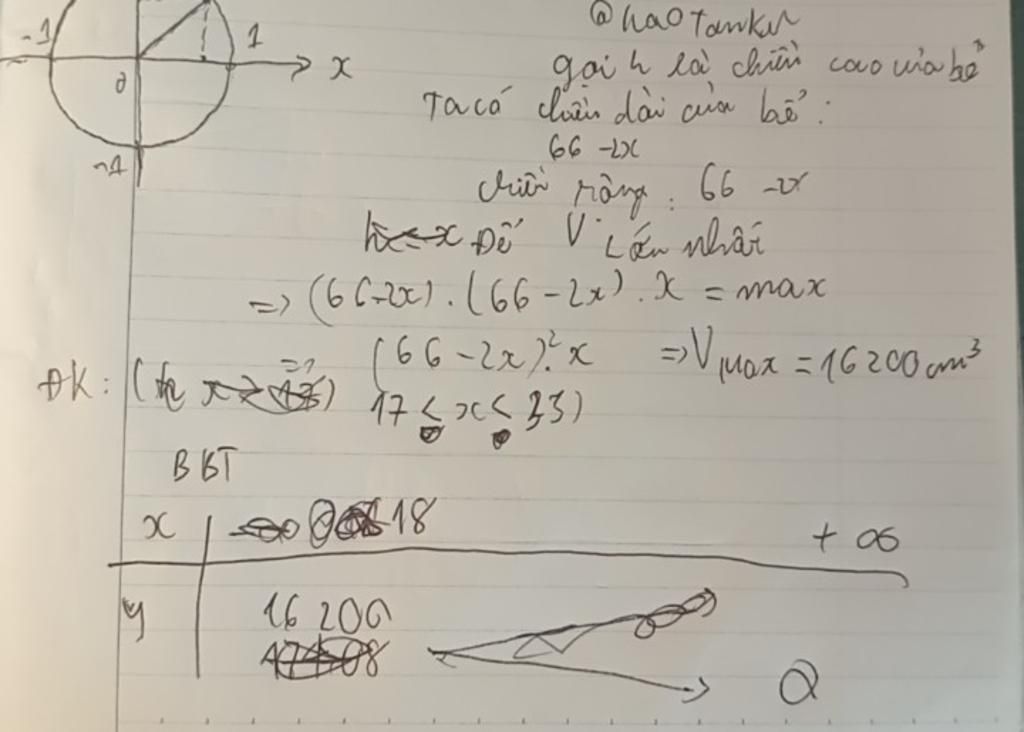 -1 1 x
0
-1
@haotankul
gọi h là chiều cao của bể
Ta có chiều dài của bể:
66 - 2x
chiều rộng: 66 - 2x
Để V lớn nhất
=> (66-2x).(66-2x).x = max
(66-2x)².x => Vmax = 16200cm³
ĐK:
17 < x < 33)
BBT
x 18 + ∞
y 16 200
0